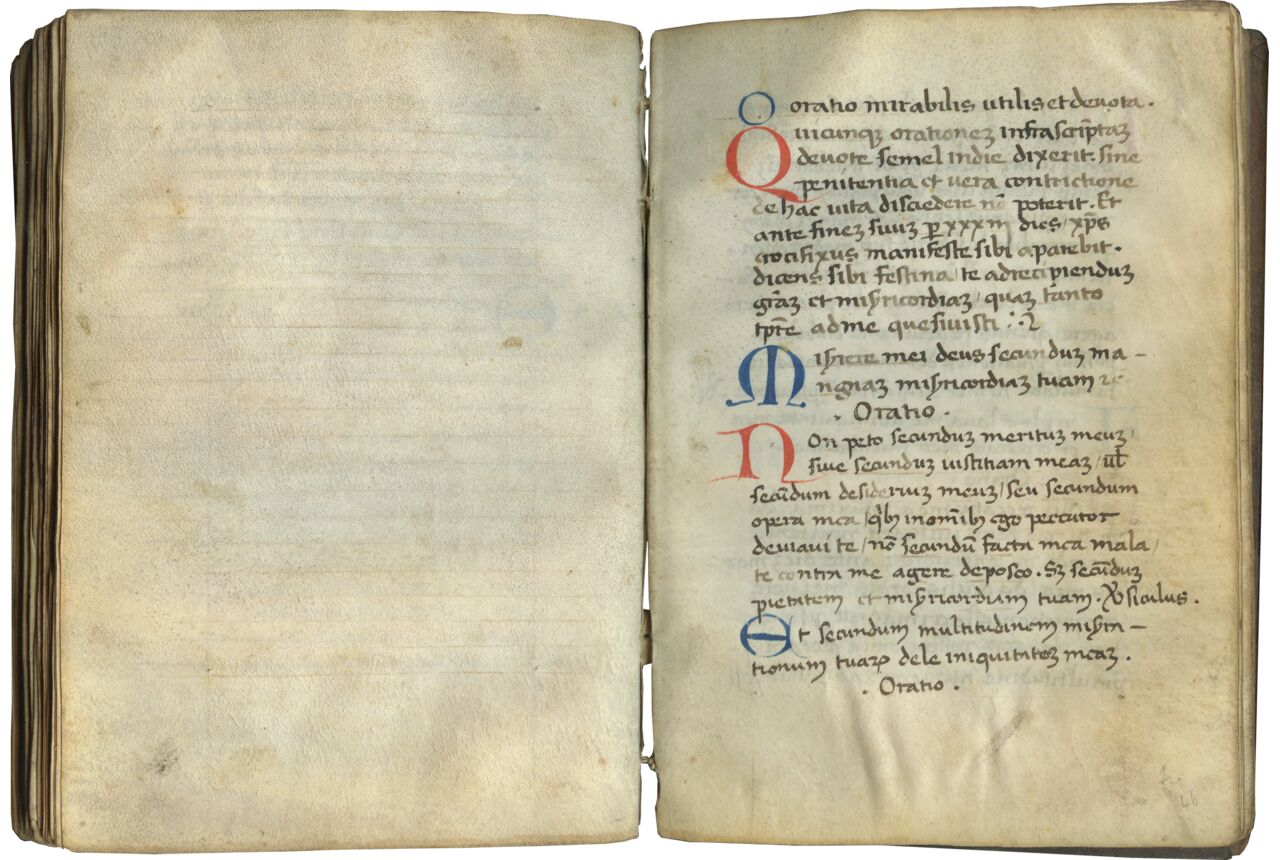 O oratio mirabilis utilis et deuota.
Quicunqꝫ orationeꝫ infrascriptaꝫ
deuote semel indie dixerit. sine
penitentia et uera contrictione
de hac uita discedere nō poterit. Et
ante fineꝫ suuꝫ ꝑ xxxiii dies / xp̄s
crocifixus manifeste sibi aparebit.
dicens sibi festina / te adrecipienduꝫ
gr̄aꝫ et mis̄ricordiaꝫ / quaꝫ tanto
tp̄re ad me quesiuisti
Mis̄rere mei deus secunduꝫ ma-
ngnaꝫ mis̄ricordiaꝫ tuam
. Oratio .
Non peto secunduꝫ meritum meuꝫ /
siue secunduꝫ iustitiam meaꝫ / ul̄
secūdum desideriuꝫ meuꝫ / seu secundum
opera mea / inomīb ego peccator
deuiaui te / nō secundū facta mea mala /
te contra me agere deposco. Sꝫ secūduꝫ
pietatem et mis̄ricordiam tuam. siculus .
Et secundum multitudinem mis̄ra-
tionum tuaꝝ dele iniquitateꝫ meaꝫ .
. Oratio .
46